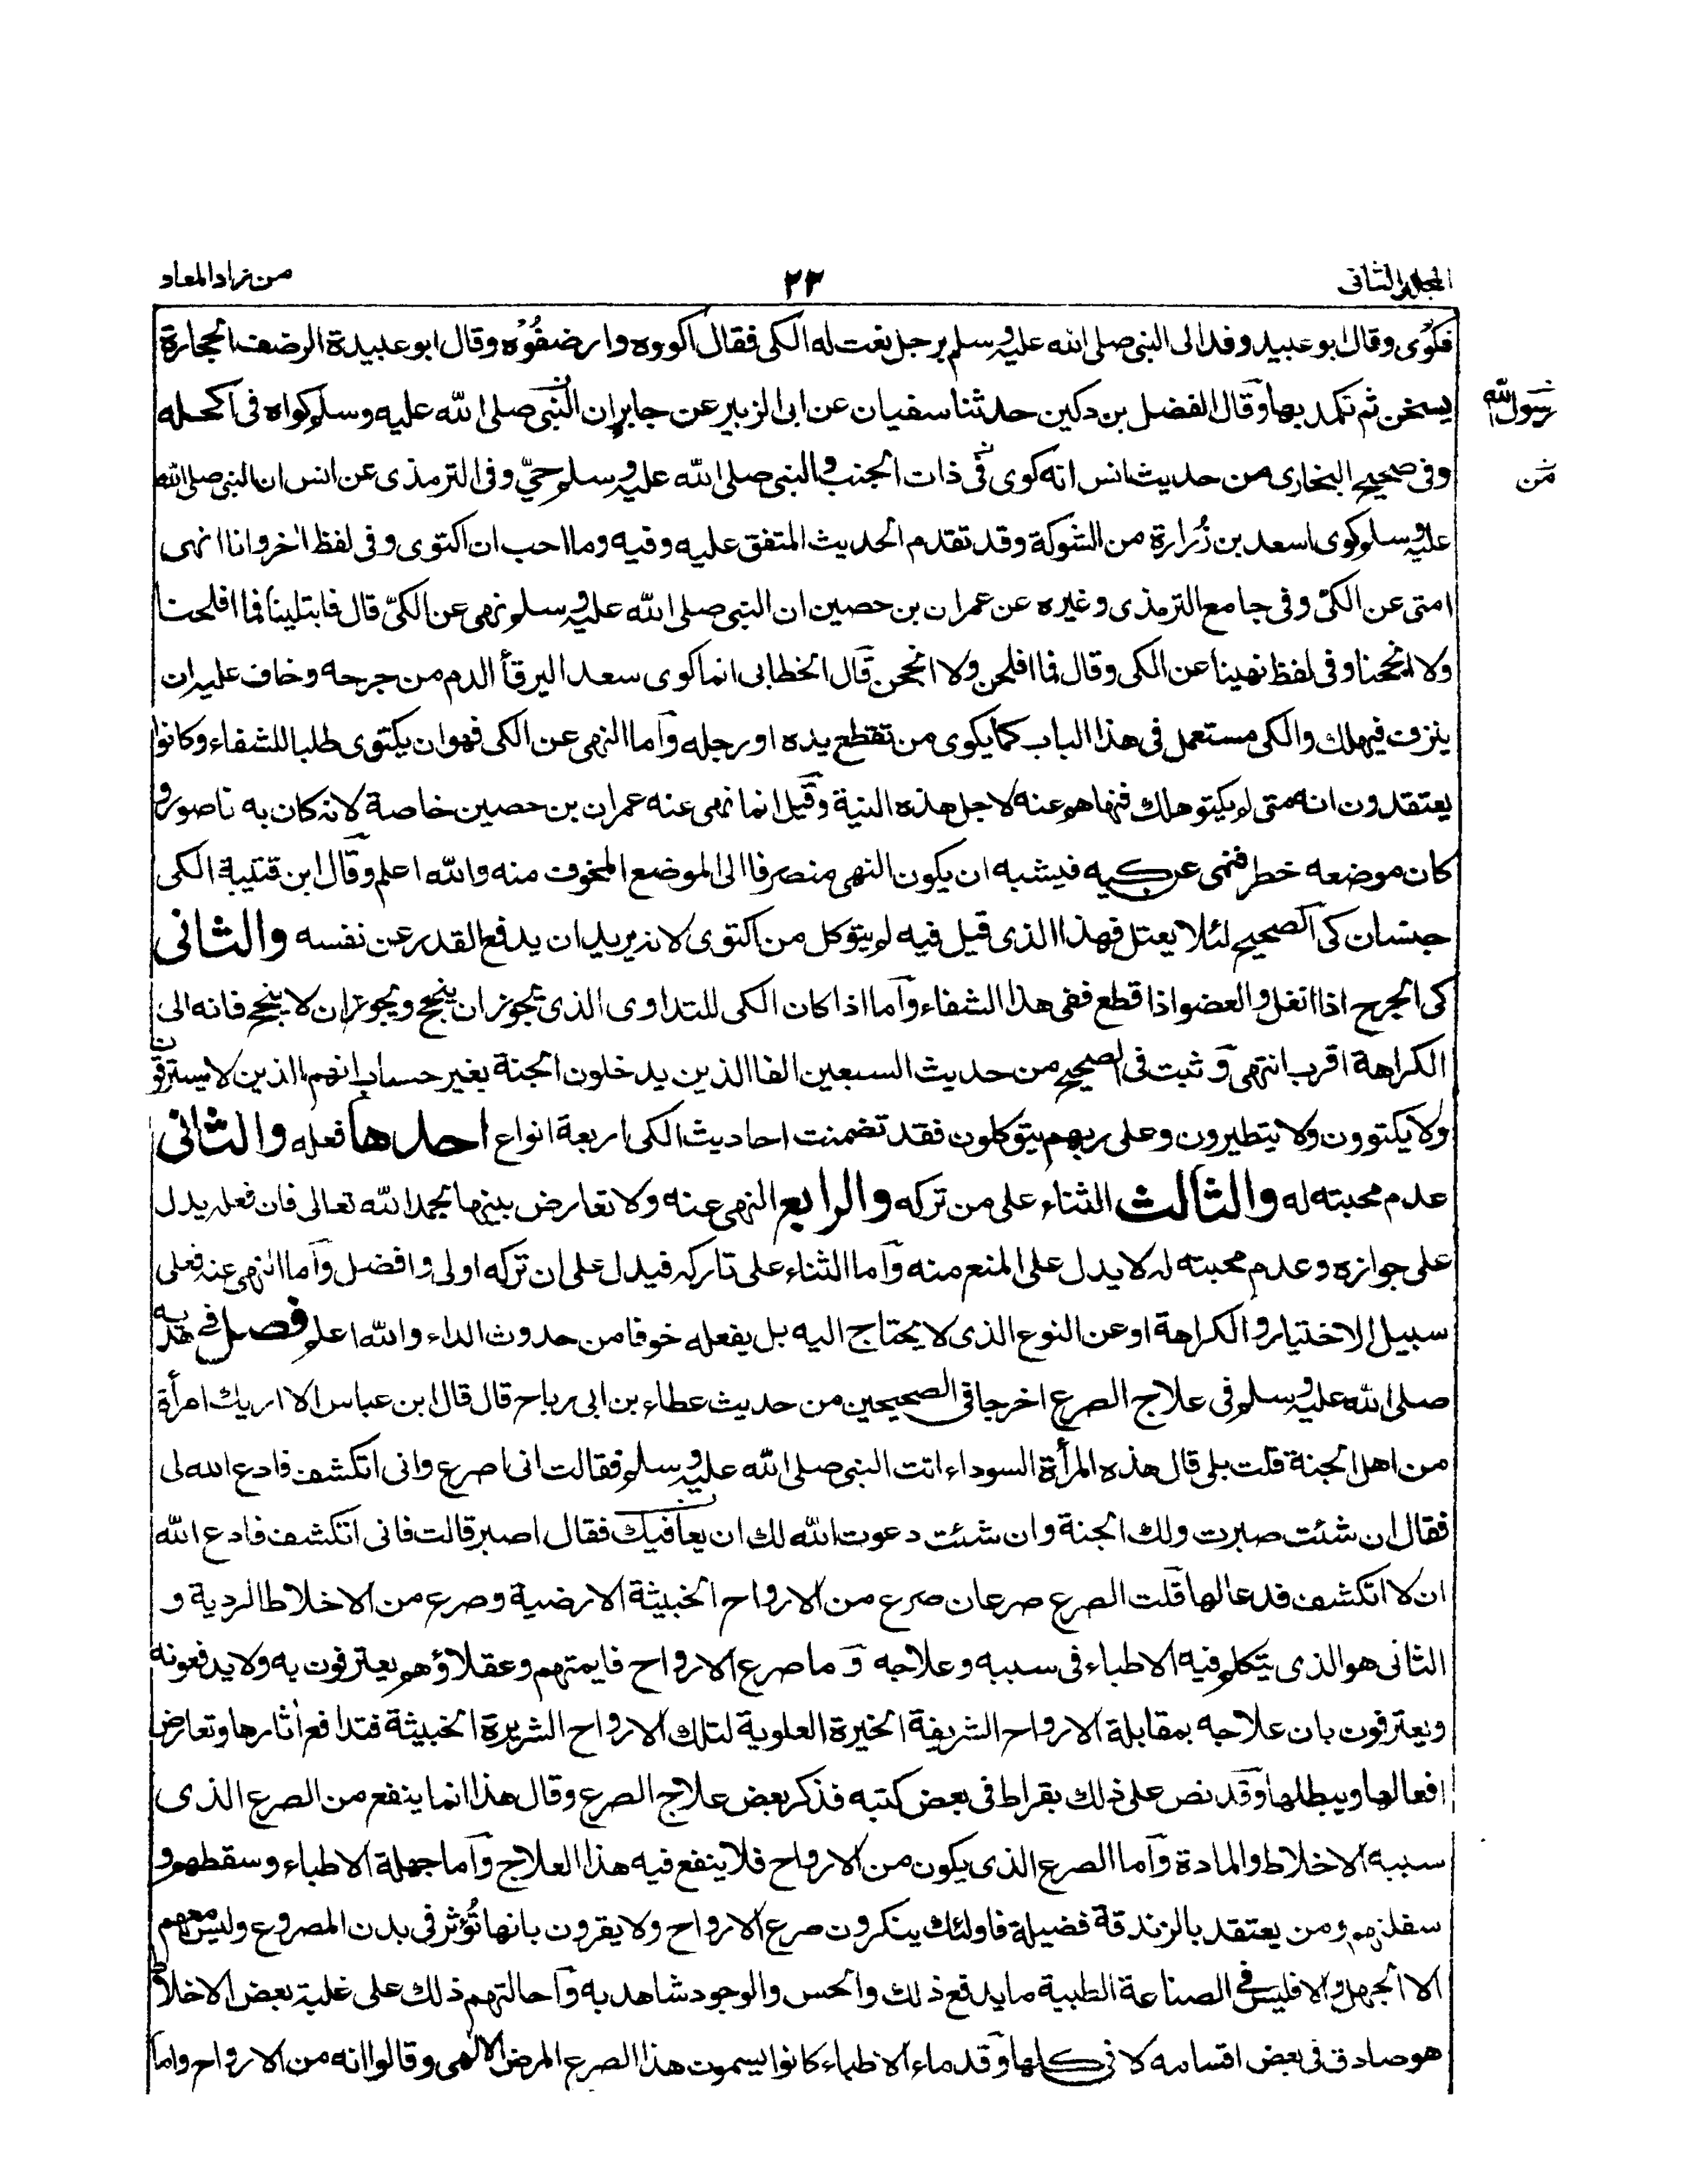 المجلد الثانى
٢٣
من زاد المعاد
فكُوُى وقال ابو عبيد وفد الى النبى صلى الله عليه وسلم برجل نعت له الكى فقال اكووه وارضفُوْه وقال ابو عبيدة الرضف الحجارة
يسخن ثم تكمد بها وقال الفضل بن دكين حدثنا سفيان عن ابى الزبير عن جابر ان النبى صلى الله عليه وسلم كواه فى اكحله
رسول الله
وفى صحيح البخارى من حديث انس انه كوى فى ذات الجنب والنبى صلى الله عليه وسلم حىّ وفى الترمذى عن انس ان النبى صلى الله
من
عليه وسلم كوى اسعد بن زُرارة من الشوكة وقد تقدم الحديث المتفق عليه وفيه وما احب ان اكتوى وفى لفظ اخر وانا انهى
امتى عن الكى وفى جامع الترمذى وغيره عن عمران بن حصين ان النبى صلى الله عليه وسلم نهى عن الكىّ قال فابتلينا فما افلحنا
ولا انجحنا وفى لفظ نهينا عن الكى وقال فما افلحن ولا انجحن قال الخطابى انما كوى سعد اليرقأ الدم من جرحه وخاف عليه ان
ينزف فيهلك والكى مستعمل فى هذا الباب كما يكوى من تقطع يده او رجله وآما النهى عن الكى فهو ان يكتوى طلبا للشفاء وكانوا
يعتقدون انه متى لم يكتو هلك فنهاهم عنه لاجل هذه النية وقيل انما نهى عنه عمران بن حصين خاصة لانه كان به ناصور و
كان موضعه خطر فنهى عن كيه فيشبه ان يكون النهى منصرفا الى الموضع المخوف منه والله اعلم وقال ابن قتيبة الكى
جنسان كى الصحيح لئلا يعتل فهذا الذى قيل فيه لم يتوكل من اكتوى لانه يريد ان يدفع القدر عن نفسه والثانى
كى الجرح اذا انغل والعضو اذا قطع ففى هذا الشفاء وآما اذا كان الكى للتداوى الذى يجوز ان ينجح ويجوز ان لا ينجح فانه الى
الكراهة اقرب انتهى وثبت فى الصحيح من حديث السبعين الفا الذين يدخلون الجنة بغير حساب انهم الذين لا يسترقون
ولا يكتوون ولا يتطيرون وعلى ربهم يتوكلون فقد تضمنت احاديث الكى اربعة انواع احدها فعله والثانى
عدم محبته له والثالث الثناء على من تركه والرابع النهى عنه ولا تعارض بينها بحمد الله تعالى فان فعله يدل
على جوازه وعدم محبته له لا يدل على المنع منه وآما الثناء على تاركه فيدل على ان تركه اولى وافضل وآما النهى عنه فعلى
سبيل الاختيار والكراهة او عن النوع الذى لا يحتاج اليه بل يفعله خوفا من حدوث الداء والله اعلم فصل فى هديه
صلى الله عليه وسلم فى علاج الصرع اخرجا فى الصحيحين من حديث عطاء بن ابى رباح قال قال ابن عباس الا اريك امرأة
من اهل الجنة قلت بلى قال هذه المرأة السوداء اتت النبى صلى الله عليه وسلم فقالت انى اصرع وانى اتكشف فادع الله لى
فقال ان شئت صبرت ولك الجنة وان شئت دعوت الله لك ان يعافيك فقال اصبر قالت فانى اتكشف فادع الله
ان لا اتكشف فدعا لها قلت الصرع صرعان صرع من الارواح الخبيثة الارضية وصرع من الاخلاط الردية و
الثانى هو الذى يتكلم فيه الاطباء فى سببه وعلاجه وما صرع الارواح فايمتهم وعقلاؤهم يعترفون به ولا يدفعونه
ويعترفون بان علاجه بمقابلة الارواح الشريفة الخيرة العلوية لتلك الارواح الشريرة الخبيثة فتدافع آثارها وتعارض
افعالها ويبطلها وقد نص على ذلك بقراط فى بعض كتبه فذكر بعض علاج الصرع وقال هذا انما ينفع من الصرع الذى
سببه الاخلاط والمادة وآما الصرع الذى يكون من الارواح فلا ينفع فيه هذا العلاج وآما جهلة الاطباء وسقطهم و
سفلتهم ومن يعتقد بالزندقة فضيلة فاولئك ينكرون صرع الارواح ولا يقرون بانها تُؤثر فى بدن المصروع وليس معهم
الا الجهل والا فليس فى الصناعة الطبية ما يدفع ذلك والحس والوجود شاهد به وآحالتهم ذلك على غلبة بعض الاخلاط
هو صادق فى بعض اقسامه لا فى كلها وقدماء الاطباء كانوا يسمون هذا الصرع المرض الالهى وقالوا انه من الارواح واما